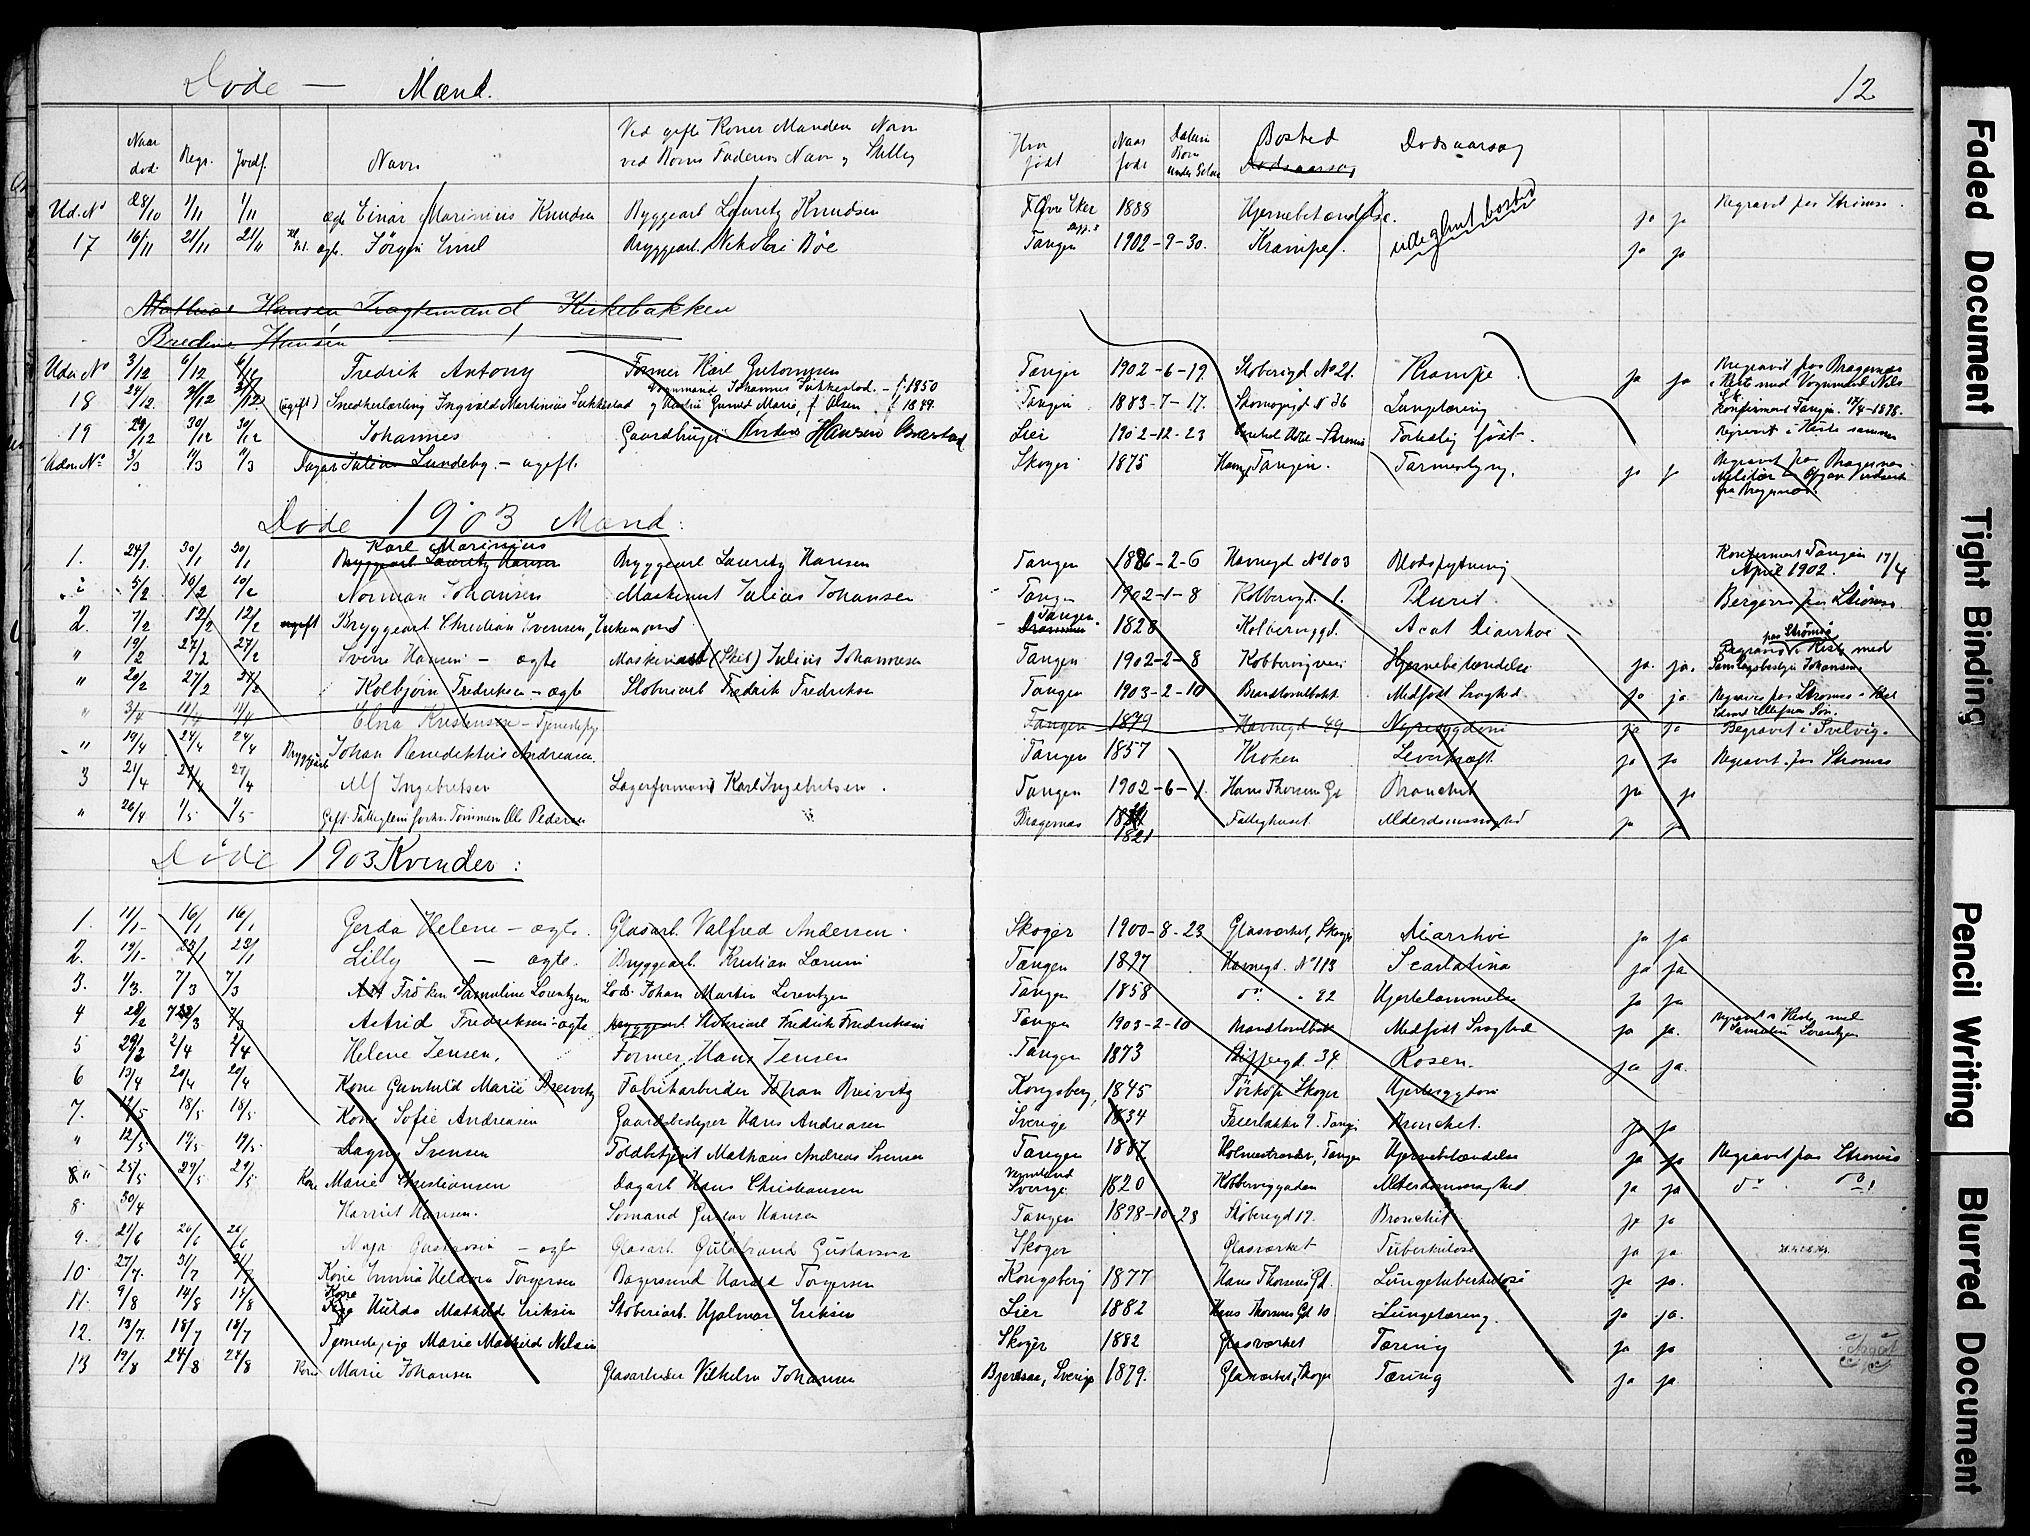 Døde — Mænd.
12
Naar død. Begr. Jordf. Navn Ved gifte Koner Mandens Navn ved Børns Faderens Navn og Stilling Hvor født Naar født Datum Børn under Bosted Dødsaarsag Dødsaarsag
Ud. No 28/10 1/11 1/11 ægte Einar Marinius Knudsen Byggearb. Lauritz Knudsen Øvre Eker 1888 Hjernebetændelse. ja ja Begravet paa Strømsø
17 16/11 21/11 21/11 ægte. Jørgen Emil Bryggearb. Nikolai Bøe Tangen 1902-9-30. Krampe. ja ja
Mathias Hansen Fragtemand Kirkebakken
Bredine Hansen
Uden No 3/12 6/12 6/12 Fredrik Antony Former Karl Guttormsen Tangen 1902-6-19 Støberigd No 21. Krampe ja ja Begravet paa Bragernes
18 24/12 31/12 31/12 (ugift) Snedkerlærling Ingvald Martinius Sukkestad Vognmand Johannes Sukkestad. - f. 1850 Tangen 1883-7-17. Strømsøgd N 36 Lungetæring i Kiste med Vognmand Nils
og Hustru Gunild Marie, f. Olsen f. 1849. Konfirmeret Tangen. 17/4-1898.
19 29/12 30/12 30/12 Johannes Gaardbruger Anders Hansen Brastad Lier 1902-12-23 Forkelig født. Begravet i Kiste sammen
Uden No 3/3 11/3 11/3 Dagarb Julius Lundeby. - ugift. Skoger 1875 Havngd Tangen. Tarmeslyng. ja ja Begravet paa Bragernes
Militær
fra Bragernæs.
Døde 1903 Mænd:
1. 24/1 30/1 30/1 Karl Marinius Bryggearb Lauritz Hansen Bryggearb Lauritz Hansen Tangen 1886-2-6 Havnegd No 103 Blodspytning Konfirmert Tangen 17/4
April 1902.
" 5/2 10/2 10/2 Norman Johansen Maskinist Julius Johansen Tangen 1902-1-8 Kobbervgd. 1. Plurit. Begraves paa Strømsø
2. 7/2 12/2 12/2 ugift Bryggearb Christian Svensen, Enkemand Drammen Tangen. 1828 Kobbervgd. Acut Diarrhoe
" 19/2 27/2 27/2 Sverre Hansen - ægte Maskinist (Skib) Julius Johannesen Tangen 1902-2-8 Kobbervigveien Hjernebetændelse ja. ja. paa Strømsø Begraves i Kiste med
" 20/2 27/2 27/2 Kolbjørn Fredriksen - ægte Støberiarb Fredrik Fredriksen Tangen 1903-2-10 Brandtomtbakk. Medfødt Svaghed. ja ja Begraves paa Strømsø i Kiste
" 3/4 11/4 11/4 Elna Kristensen - Tjenestepige Tangen 1879 Havnegd 49 Nyresygdom ja ja Begravet i Svelvig.
" 19/4 24/4 24/4 Bryggearb Johan Benediktus Andreasen. Tangen 1857 Kroken Leverkræft. ja ja Begravet paa Strømsø
3 21/4 27/4 27/4 Alf Ingebretsen Lagerformand Karl Ingebretsen. Tangen 1902-6-1. Hans Thorsen Gd Bronchit ja ja
" 26/4 1/5 1/5 Gift - Fattiglem forhv. Tømmerm Ole Pedersen Bragernæs 1821 Fattighuset. Alderdomssvaghed ja ja
Døde 1903 Kvinder:
1. 11/1 16/1 16/1 Gerda Helene - ægte. Glasarb. Valfred Andersen. Skoger 1900-8-23 Glasværket, Skoger Diarrhoe ja ja
2. 19/1 23/1 23/1 Lilly - ægte. Bryggearb. Kristian Larsen Tangen 1897 Havnegd. No 113 Scarlatina ja ja
3. 1/3. 7/3 7/3 Frøken Samuline Lorentzen Lods. Johan Martin Lorentzen Tangen 1858 do. " 92 Hjertelammelse ja ja
4 28/2 7/3 7/3 Astrid Fredriksen - ægte Bryggearb Støberiarb Fredrik Fredriksen Tangen 1903-2-10 Brandtomtbakk Medfødt Svaghed ja ja. Begravet i Kiste med
Samuline Lorentzen
5 29/2 2/4 2/4 Helene Jensen. Former, Hans Jensen Tangen 1873 34. Rosen. ja ja.
6 13/4 20/4 20/4 Kone Gunhild Marie Breivik Fabrikarbeider Johan Breivik Kongsberg, 1845 Tørkop Skoger Hjertesygdom
7. 12/5 18/5 18/5 Kone Sofie Andreasen Gaardsbestyrer Hans Andreasen Sverige 1834 Feierbakken 9. Tangen Bronchit. ja ja
" 12/5 19/5 19/5 Dagny Svensen Toldbetjent Mathæus Andreas Svensen Tangen 1887 Holmestranden, Tangen Hjernebetændelse ja ja Begravet paa Strømsø
8 " 25/5 29/5 29/5 Kone Marie Christiansen Dagarb Hans Christiansen Vermland Sverige 1820 Kobberviggaden Alderdomssvaghed. ja ja do. do.
8. 30/4 Harriet Hansen. Sømand Gustav Hansen Tangen 1898-10-28 Støberigd 17. Bronchit ja ja
9. 21/6 26/6 26/6 Maja Gustavsen - ægte Glasarb. Guldbrand Gustavsen Skoger Glasværket Tuberkulose ja ja.
10. 27/7. 31/7 31/7 Kone Emma Heldora Torgersen Bagersvend Harald Torgersen Kongsberg 1877 Hans Thorsens Gd. Lungetuberkulose ja ja.
11. 9/8 14/8 15/8 Kone Hulda Mathild Eriksen Støberiarb. Hjalmar Eriksen Lier 1882 Hans Thorsens Gd 10 Lungetæring. ja ja.
12. 13/7. 18/7 18/7 Tjenestepige Marie Mathild Nilsen Skoger 1882 Glasværket Tæring ja ja
13 19/8 24/8 24/8 Kone Marie Johansen Glasarbeider Vilhelm Johansen Sverige 1879. Glasværket, Skoger Tæring ja ja.
Faded Document
Tight Binding
Pencil Writing
Blurred Document